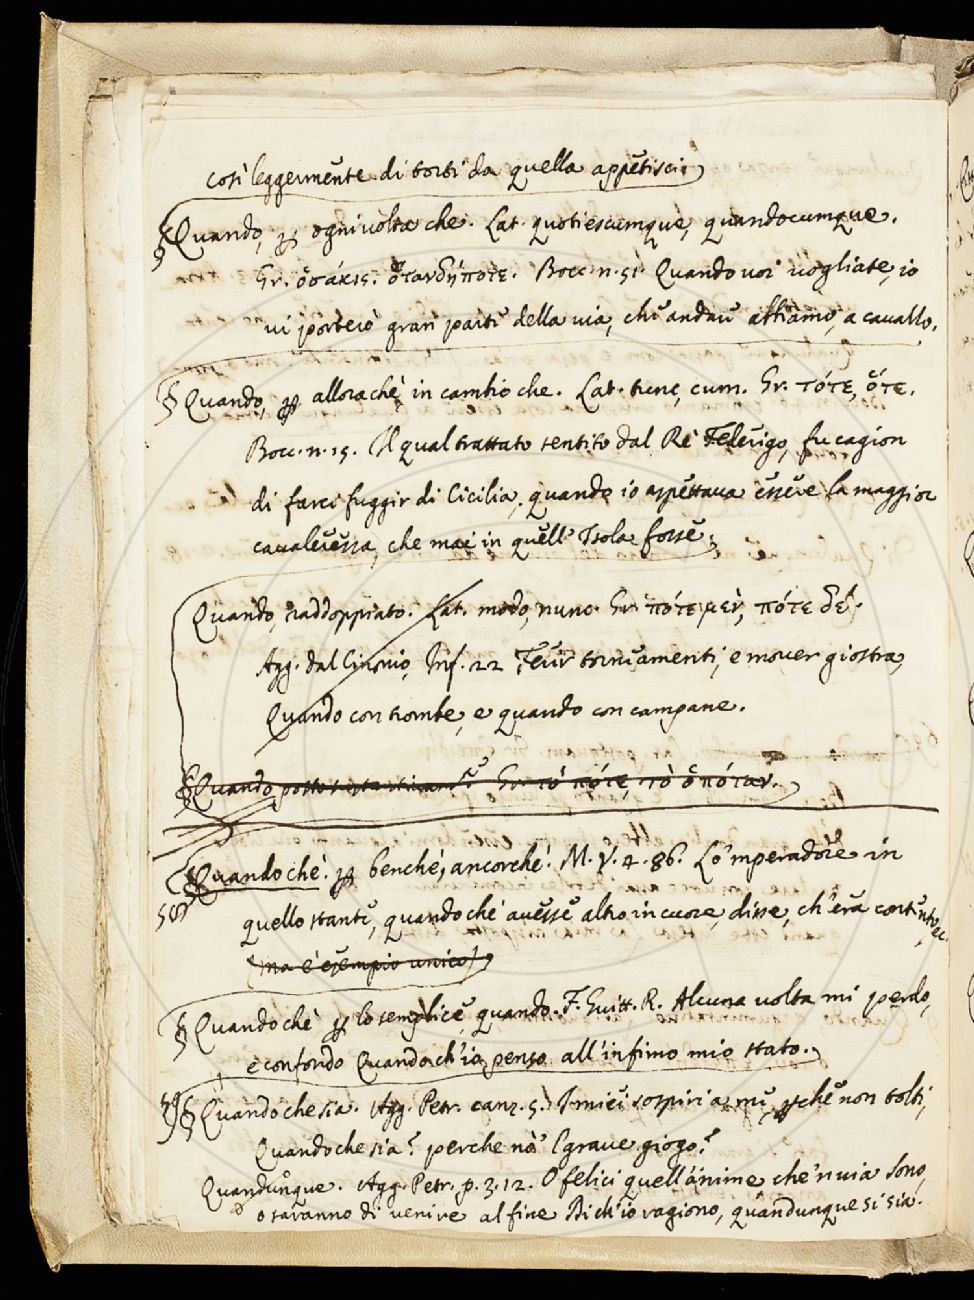 così leggermente di torti da quella appetisci
§ Quando, ꝑ ogni volta che. Lat. quotiescumque, quandocumque.
Gr. ὁσάκις. ὅτανδήποτε. Bocc. n. 51. Quando voi vogliate, io
vi porterò gran parte della via, che andare abbiamo, a cavallo.
§ Quando, ꝑ allorachè, in cambio che. Lat. tunc, cum. Gr. τότε, ὅτε.
Bocc. n. 15. Il qual trattato sentito dal Re Federigo, fu cagion
di farci fuggir di Cicilia, quando io aspettava essere la maggior
cavaleressa, che mai in quell' Isola fosse.
Quando, raddoppiato. Lat. modo, nunc. Gr. πότε μὲν, πότε δὲ.
Agg. dal Cinonio, Inf. 22 Ferir torniamenti, e mover giostra,
Quando con trombe, e quando con campane.
§ Quando posto Gr. τὸ πότε, τὸ ὁπόταν.
Quandochè. ꝑ benchè, ancorchè. M. V. 4. 86. Lo 'mperadore in
quello stante, quandochè avesse altro in cuore, disse, ch' era contento ec.
(ma è esempio unico)
§ Quandochè ꝑ lo semplice quando. F. Guitt. R. Alcuna volta mi perdo,
e confondo Quandoch' io penso all' infimo mio stato.
§ Quandochesia. Agg. Petr. canz. 5. I miei sospiri a me ꝑchè non tolti,
Quandochesia? perche no 'l grave giogo?
Quandunque. Agg. Petr. p. 3. 12. O felici quell' anime che 'n via sono,
o saranno di venire al fine Di ch' io ragiono, quandunque si sia.